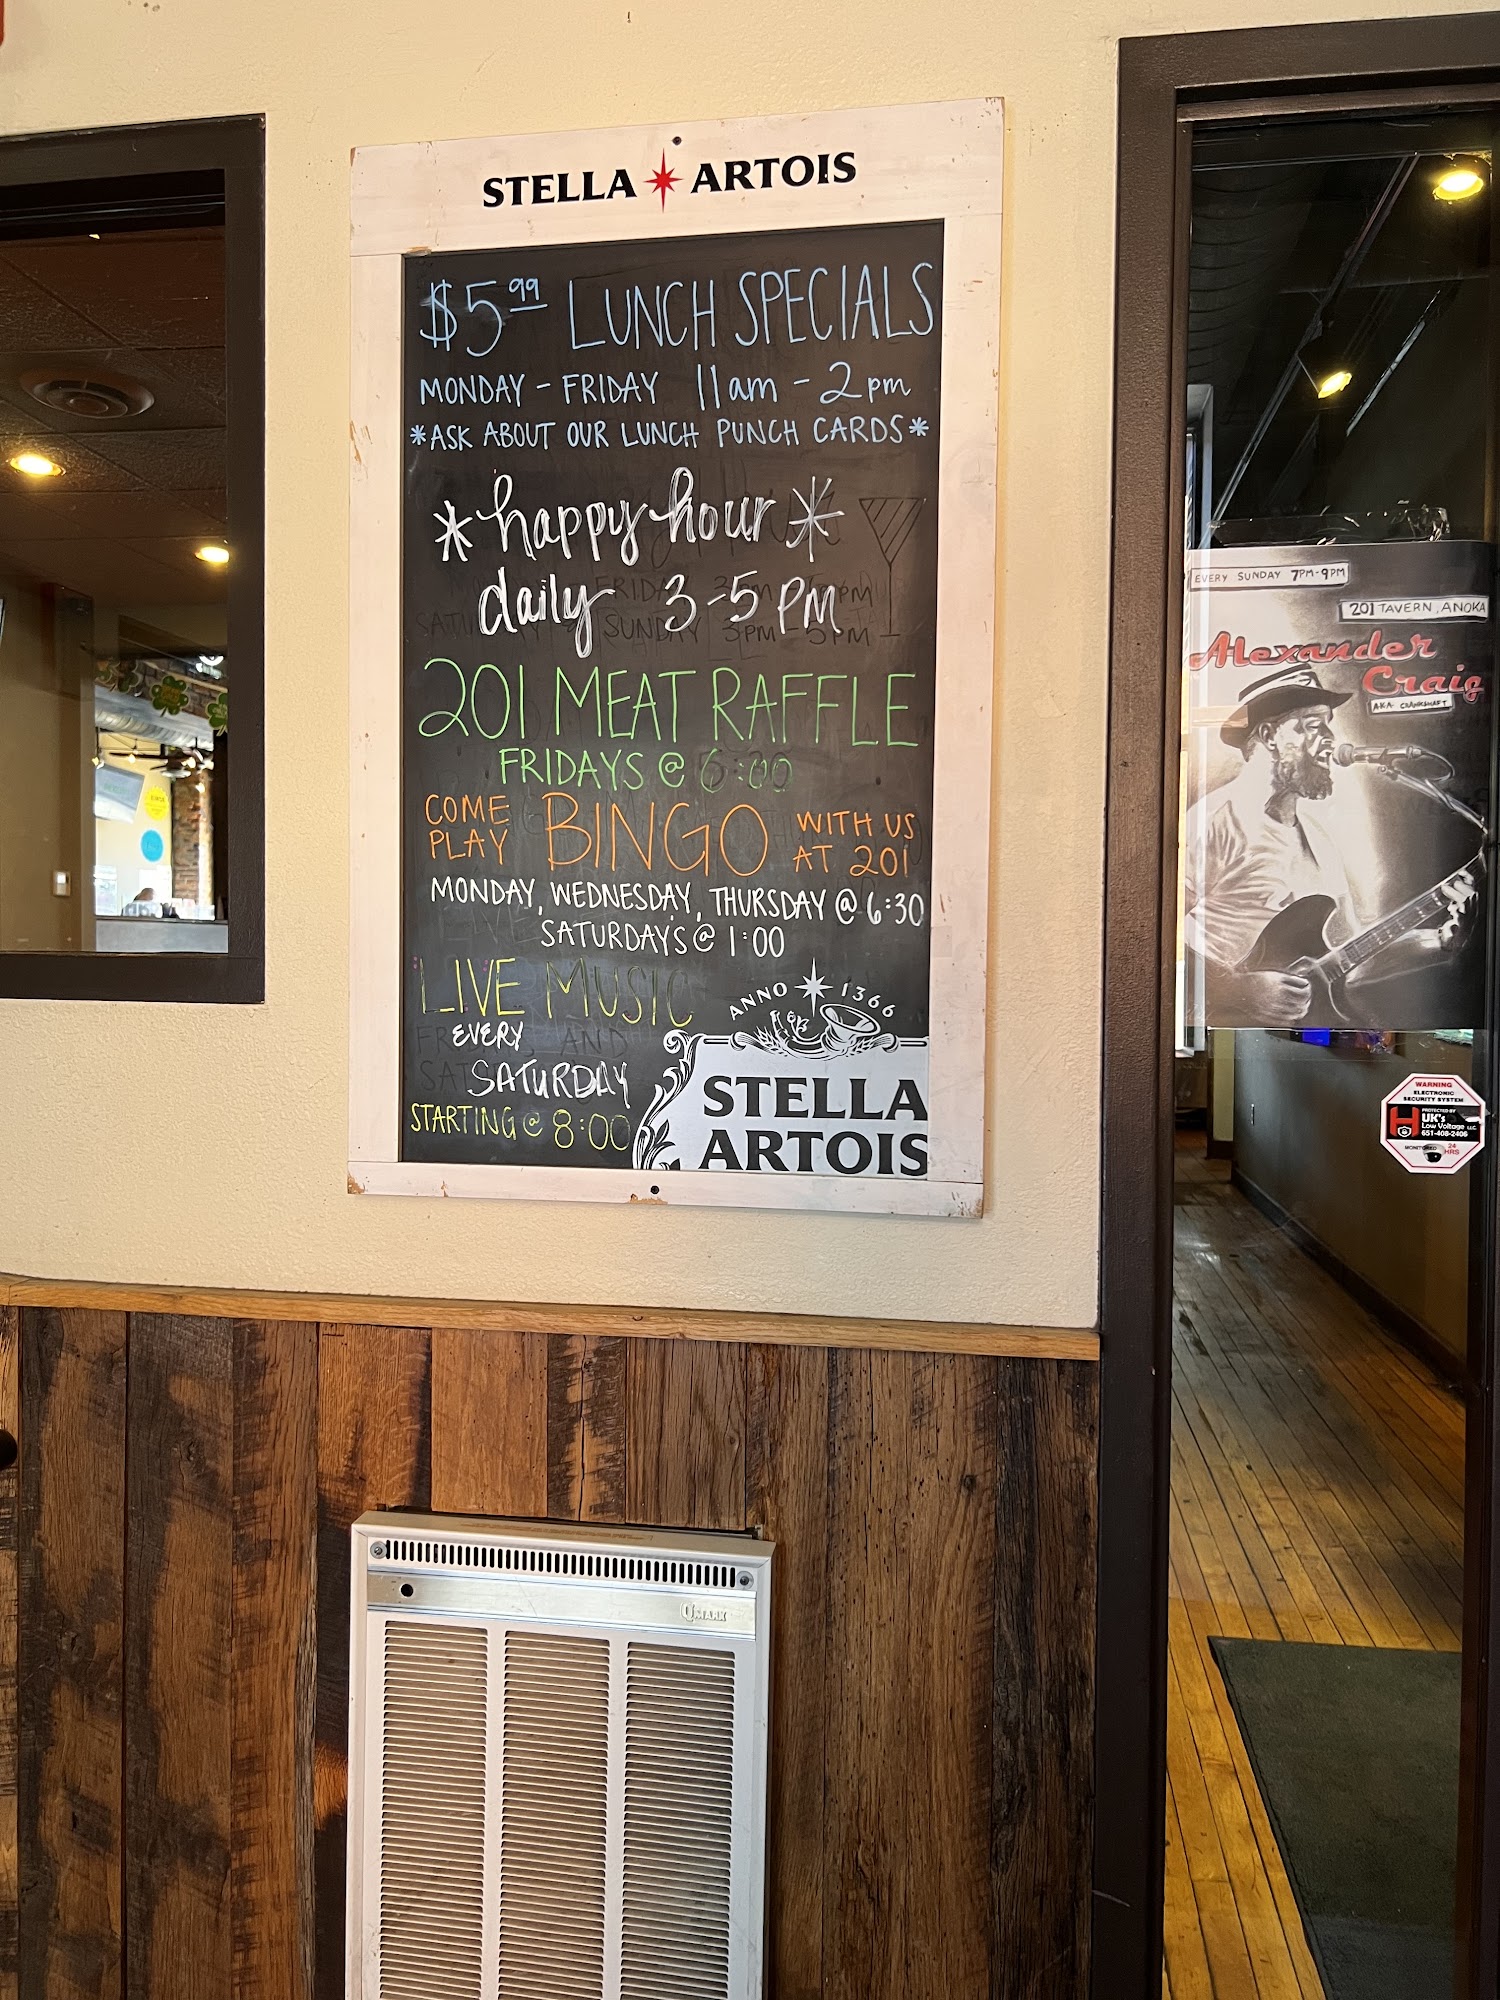 STELLA ARTOIS
$5.99 LUNCH SPECIALS
MONDAY - FRIDAY 11am - 2pm
*ASK ABOUT OUR LUNCH PUNCH CARDS*
*happy hour*
daily 3-5 PM
201 MEAT RAFFLE
FRIDAYS @ 6:00
COME PLAY BINGO WITH US AT 201
MONDAY, WEDNESDAY, THURSDAY @ 6:30
SATURDAYS @ 1:00
LIVE MUSIC
EVERY
SATURDAY
STARTING @ 8:00
ANNO 1366
STELLA
ARTOIS
EVERY SUNDAY 7PM-9PM
201 TAVERN, ANOKA
Alexander
Craig
AKA CRANKSHAFT
WARNING
ELECTRONIC
SECURITY SYSTEM
PROTECTED BY
UK's
Low Voltage LLC.
651-408-2406
MONITORED 24
HRS
QMARK